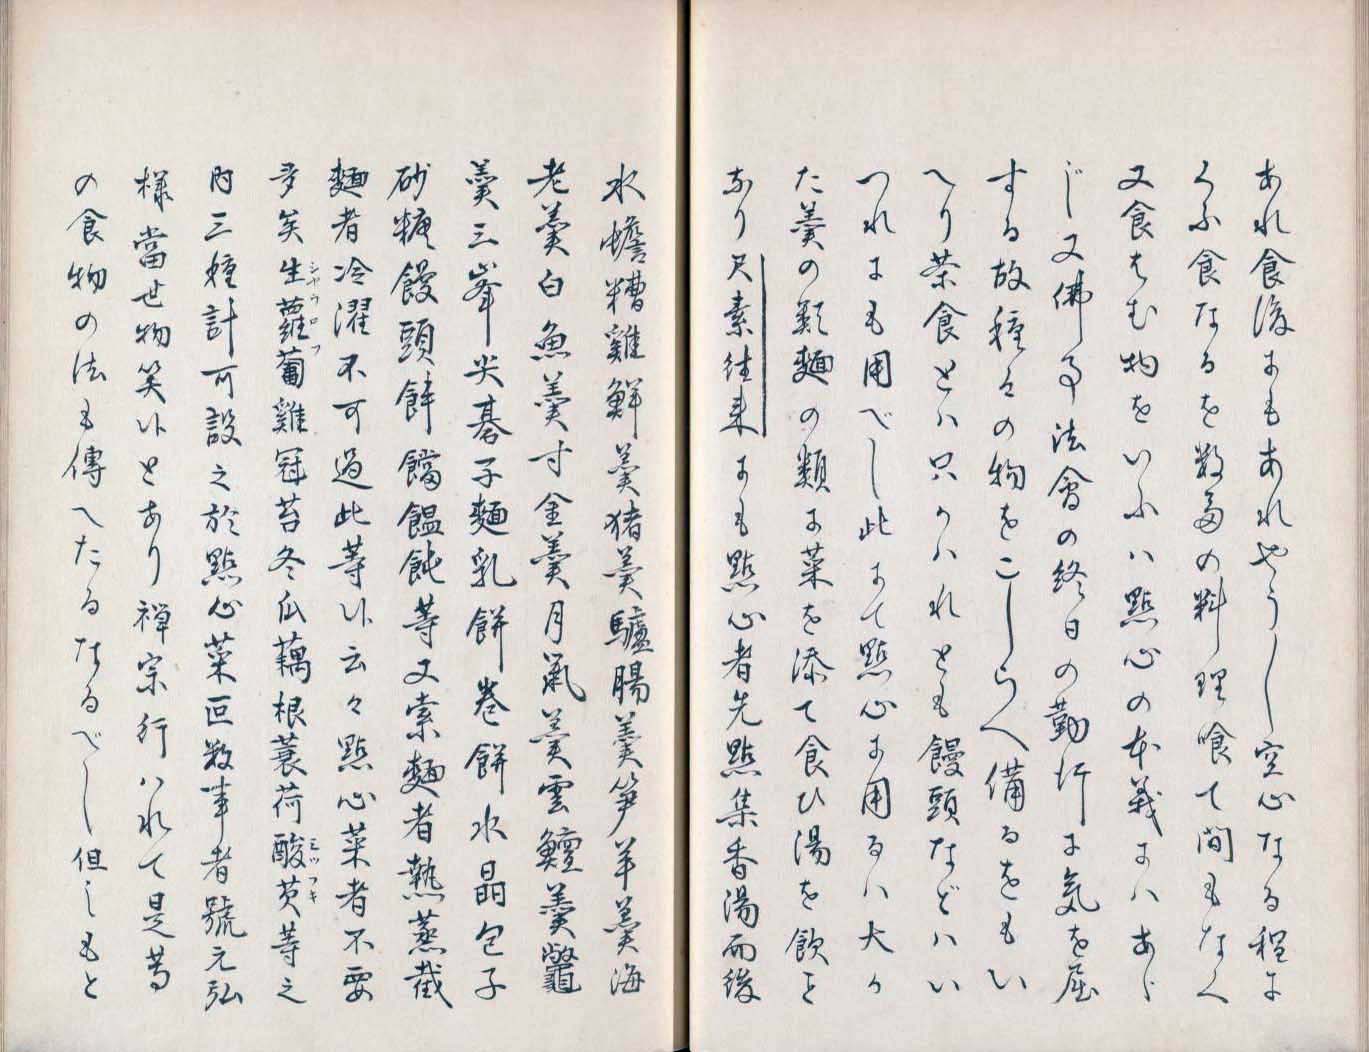 あれ食後にもあれやうし空心なる程に
くふ食なるを数多の料理喰て間もなく
又食はむ物をいふハ點心の本義にハあら
じ又佛事法會の終日の勤行に気を屈
する故種々の物をこしらへ備るをもい
へり茶食とハ只かハれとも饅頭などハい
つれにも用べし此にて點心に用るハ大か
た羹の類麺の類に菜を添て食ひ湯を飲と
なり尺素往来にも點心者先點集香湯而後
水蟾糟雞鮮羹猪羹驢腸羹笋羊羹海
老羹白魚羹寸金羹月鼠羹雲鱣羹鼈
羹三峯尖碁子麺乳餅巻餅水晶包子
砂糖饅頭餅䭔饂飩等又索麺者熱蒸截
麺者冷濯不可過此等候云々點心菜者不要
多矣生蘿蔔雞冠苔冬瓜藕根蓑荷酸茨等之
シヤウロフ
ミツフキ
内三種計可設之於點心菜叵数事者號元弘
様當世物笑候とあり禅宗行ハれて是等
の食物の法も傳へたるなるべし但しもと